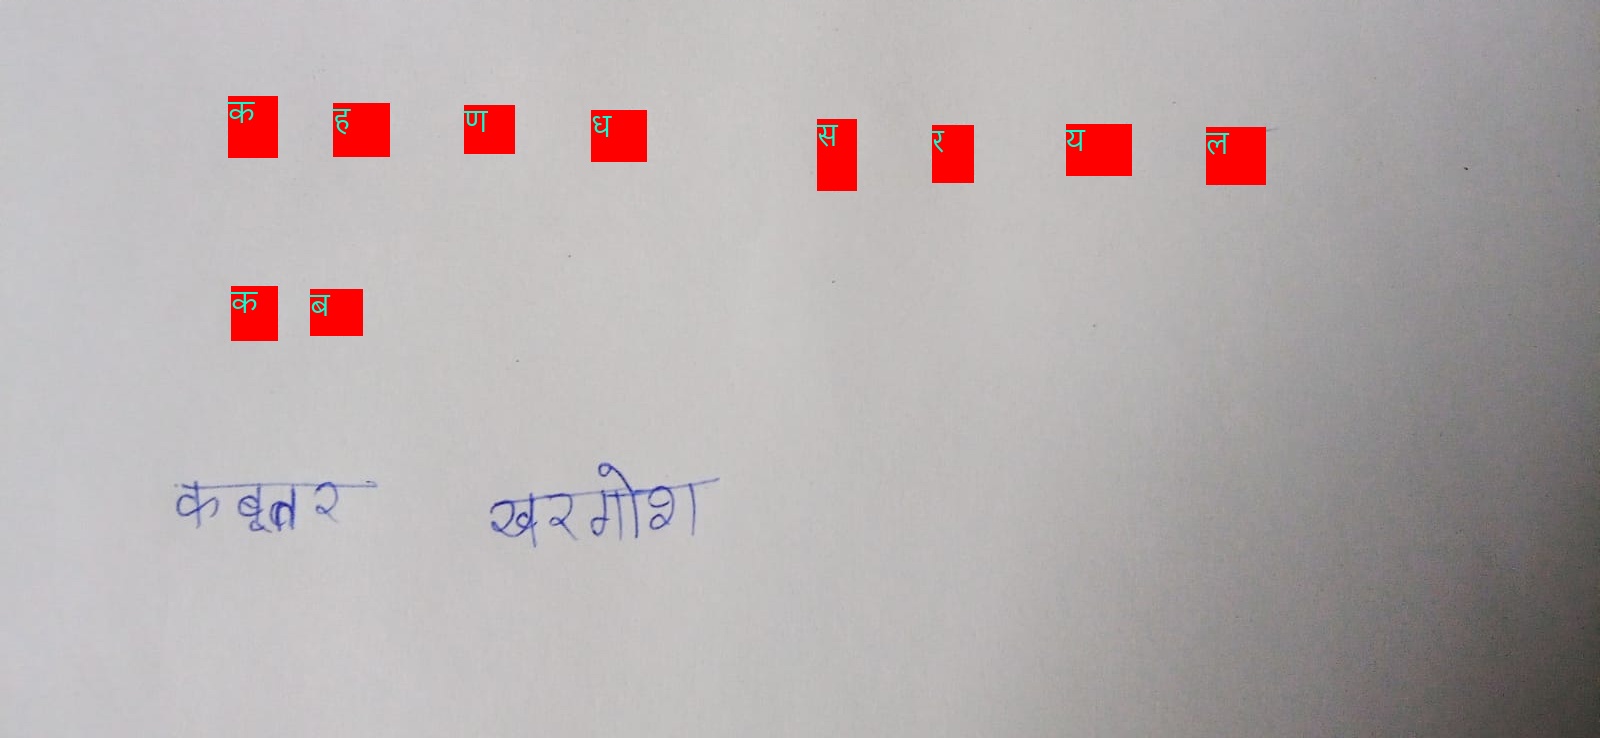 क ह ण ध स र य ल
क ब
कबूतर खरगोश